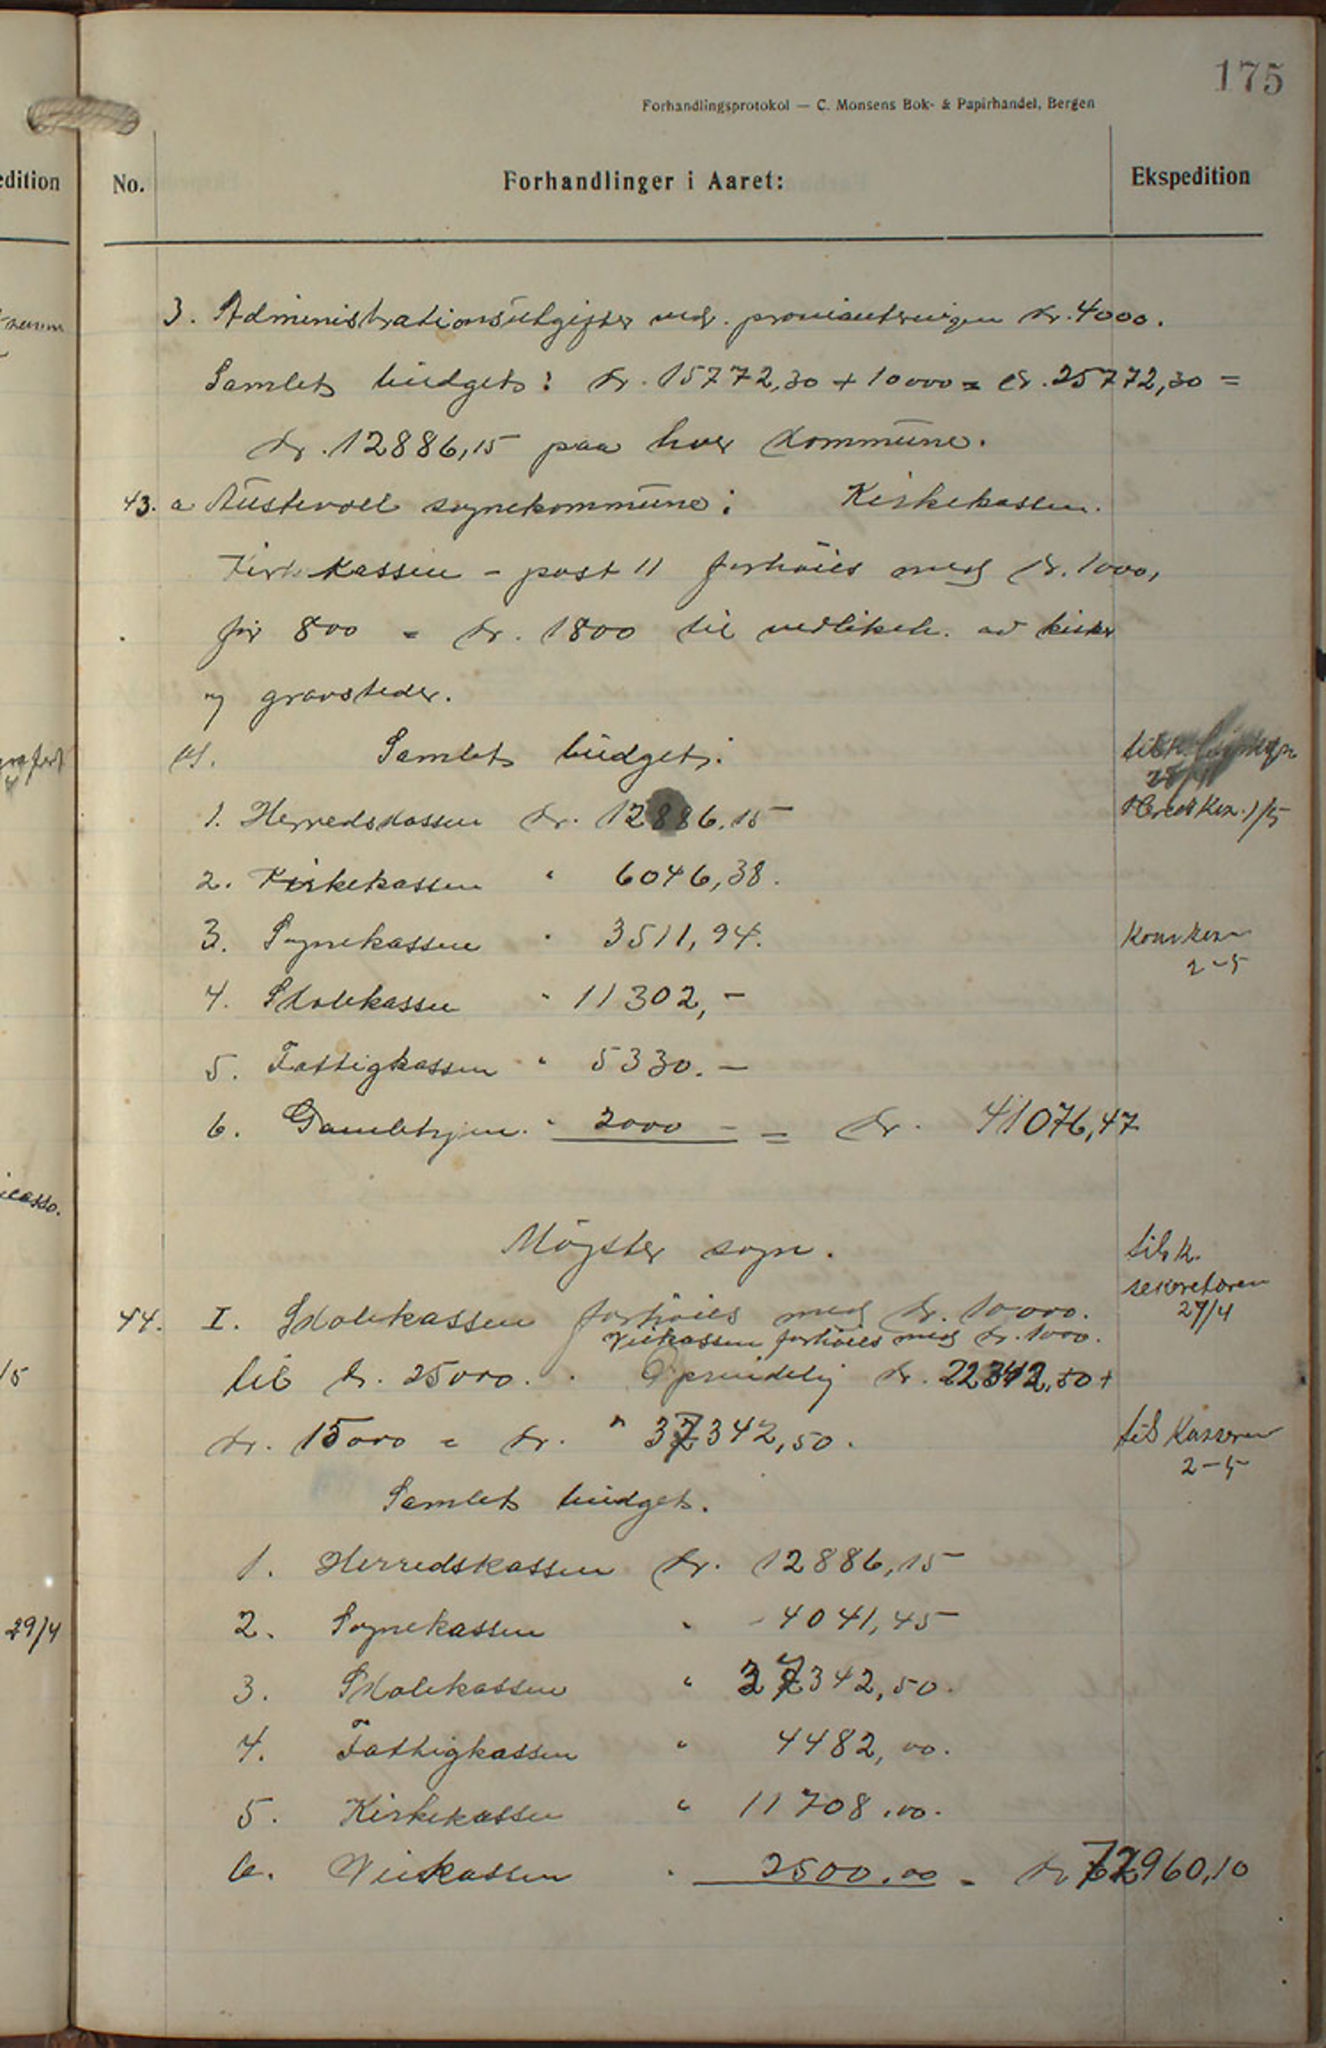 175
Forhandlingsprotokol — C. Monsens Bok- & Papirhandel, Bergen
edition
No.
Forhandlinger i Aaret:
Ekspedition
3. Administrationsutgifter ved. provianteringen kr. 4000.
Samlet budget: kr. 15772,30 + 10000 = kr. 25772,30 =
kr. 12886,15 paa hver kommune.
43. a Austevoll sognekommune: Kirkekassen.
Kirkekassen - post 11 forhöies med kr. 1000,
för 800 = kr. 1800 til vedlikeh. av kirker
og gravsteder.
Samlet budget:
1. Herredskassen kr. 12886,15
28/4
1/5
2. Kirkekassen " 6046,38.
3. Sognekassen " 3511,94.
2-5
4. Skolekassen " 11302,-
5. Fattigkassen " 5330.-
6. Gamlehjem. " 2000 - = kr. 41076,47
Mögster sogn.
til k.
sekretæren
27/4
44. I. Skolekassen forhöies med kr. 10000.
Veikassen forhöies med kr. 1000.
til kr. 25000. Oprindelig kr. 22342,50 +
kr. 15000 = kr. " 37342,50.
til Kasseren
2-5
Samlet budget.
1. Herredskassen kr. 12886,15
2. Sognekassen " 4041,45
29/4
3. Skolekassen " 37342,50.
4. Fattigkassen " 4482,00.
5. Kirkekassen " 11708,00.
6. Veikassen " 2500,00 = kr 72960,10